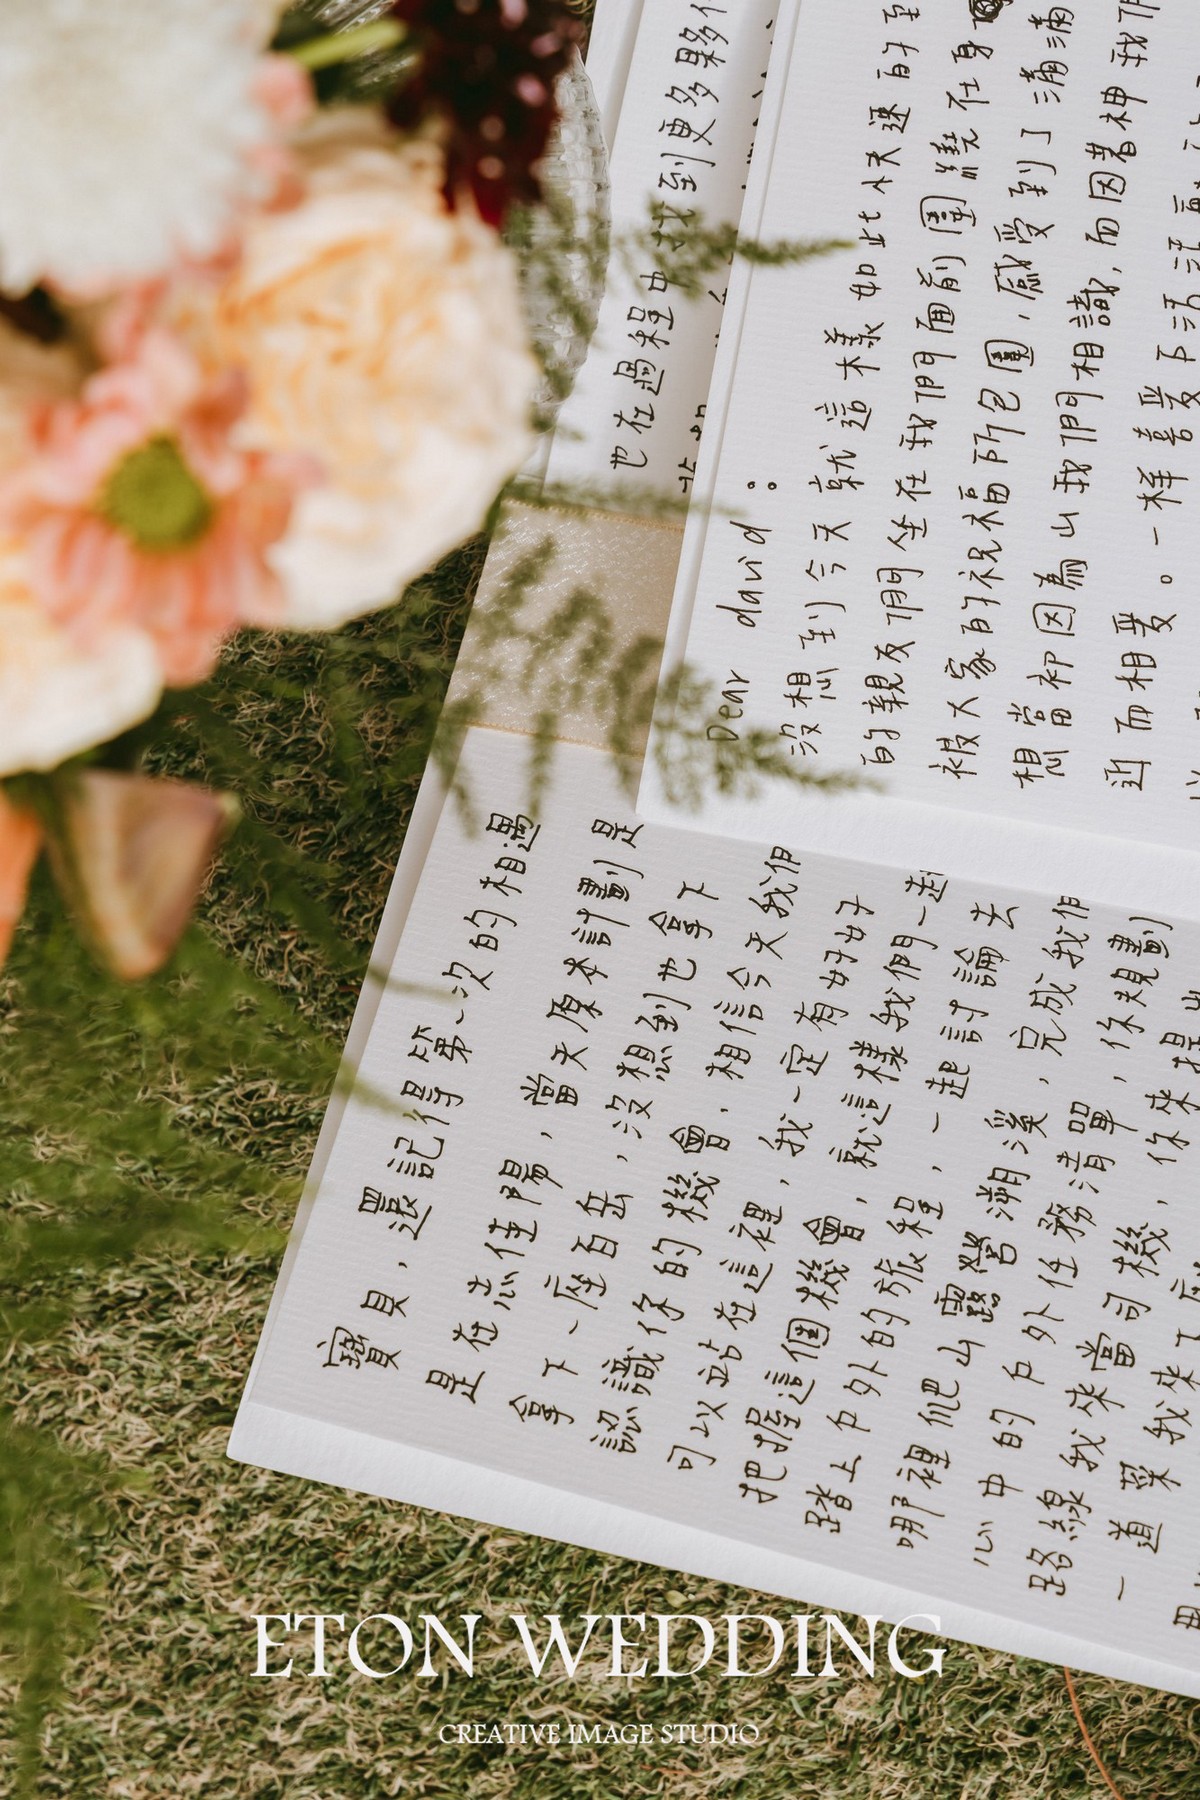 也在過程中找到更多夥
Dear david：
沒想到今天就這樣如此快速的
的親友們坐在我們面前圍繞在身
被大家的祝福所包圍，感受到了滿滿
想當初因為山我們相識，而因著神我們
近而相愛。一樣喜愛
寶貝，還記得第一次的相遇
是在志佳陽，當天原本計劃是
拿下一座百岳，沒想到也拿下
認識你的機會，相信今天我們
可以站在這裡，我一定有好好
把握這個機會，就這樣我們一起
踏上戶外的旅程，一起討論去
哪裡爬山露營溯溪，完成我們
心中的戶外任務清單，你規劃
路線我來當司機，你來提出
一道菜我來下
ETON WEDDING
CREATIVE IMAGE STUDIO